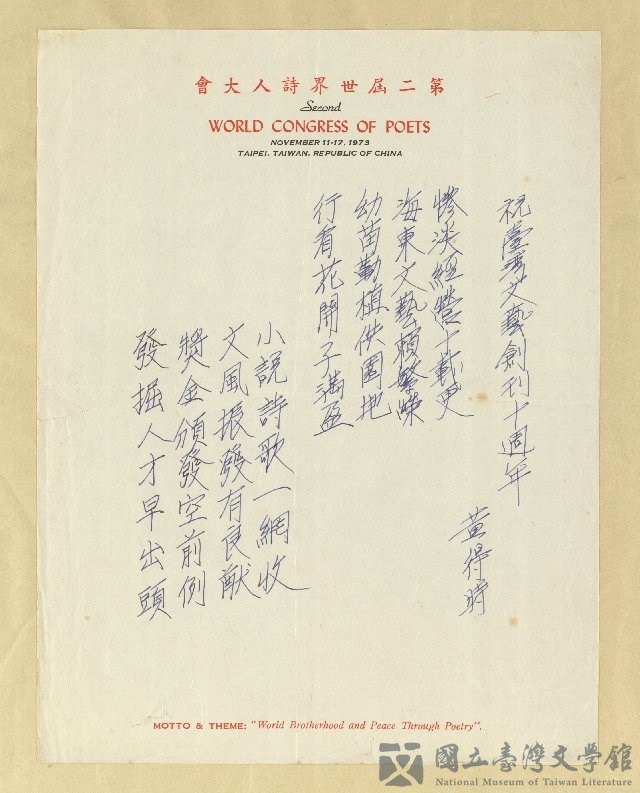 第二屆世界詩人大會
Second
WORLD CONGRESS OF POETS
NOVEMBER 11-17, 1973
TAIPEI, TAIWAN, REPUBLIC OF CHINA
祝臺灣文藝創刊十週年
黃得時
慘淡經營十載更
海東文藝賴繁嶸
幼苗勤植供園地
行看花開子滿盈
小說詩歌一網收
文風振發有良猷
獎金頒發空前例
發掘人才早出頭
MOTTO & THEME: "World Brotherhood and Peace Through Poetry".
國立臺灣文學館
National Museum of Taiwan Literature